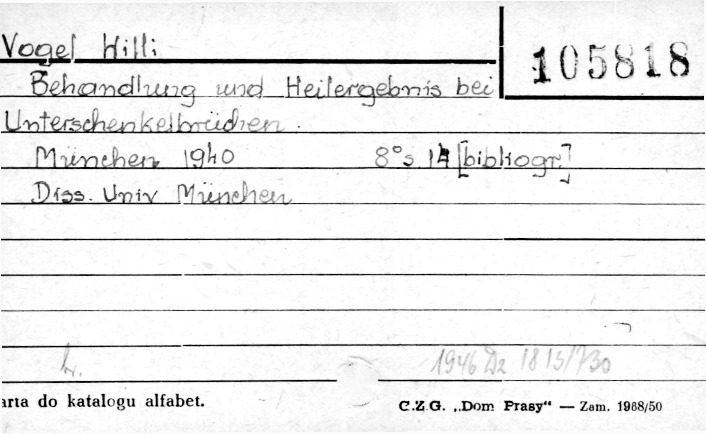 Vogel Hilli
105818
Behandlung und Heilergebnis bei
Unterschenkelbrüchen.
München 1940 8° s. 14 [bibliogr.]
Diss. Univ München
1946 Dz 1815/730
arta do katalogu alfabet.
C.Z.G. „Dom Prasy“ — Zam. 1968/50